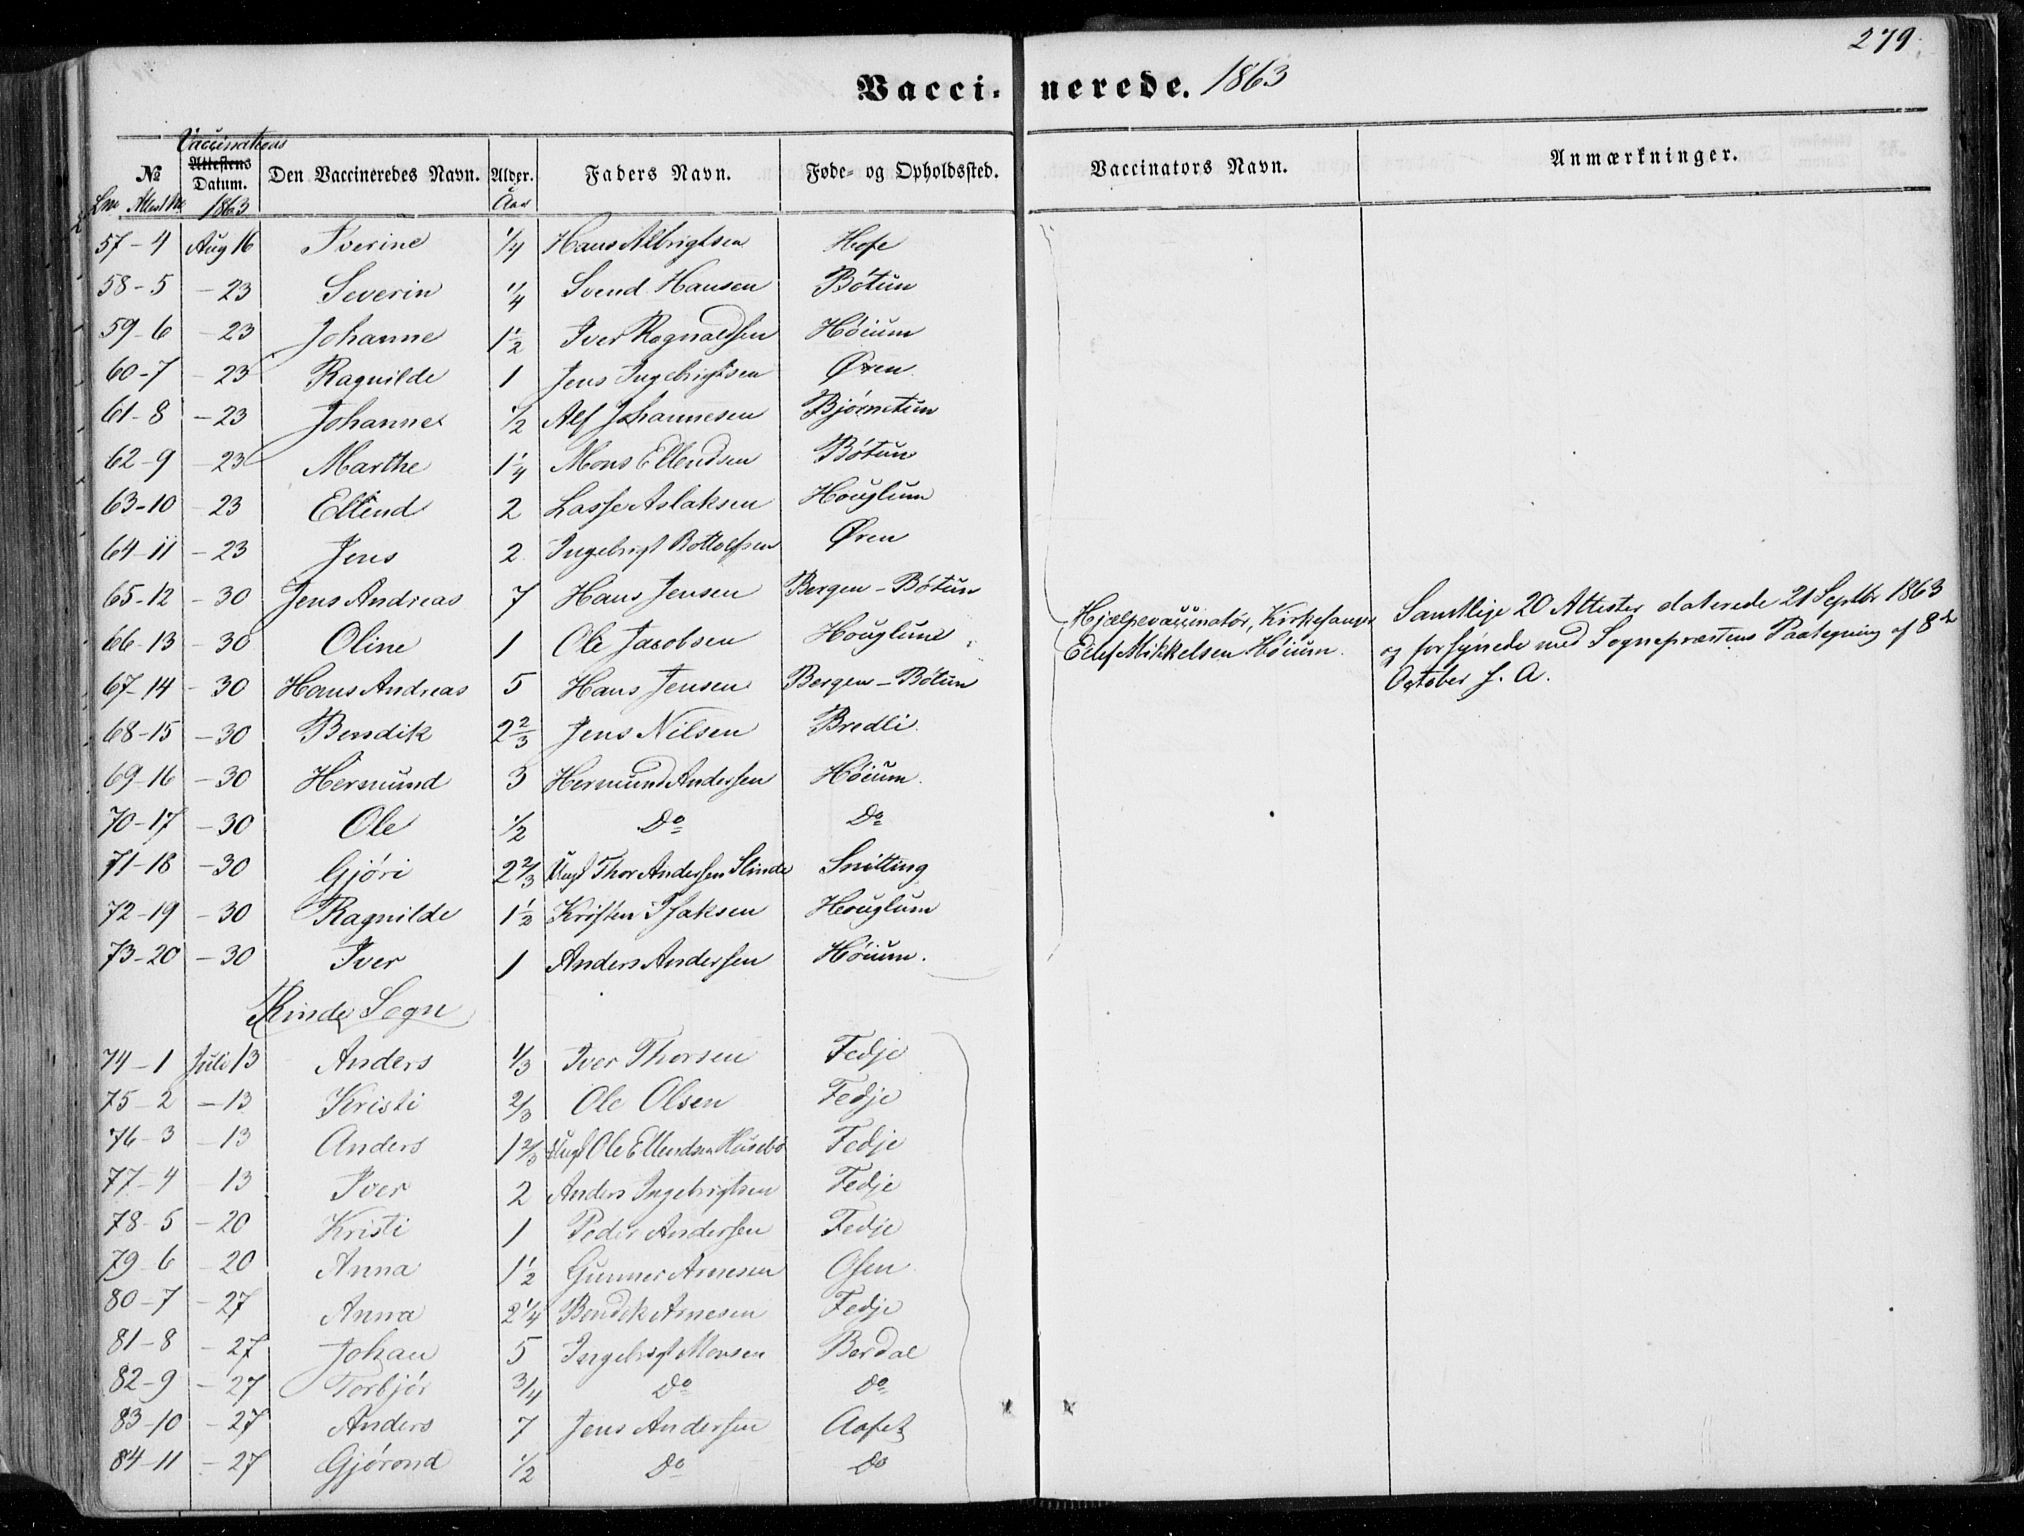 279
Vaccinerede. 1863
Vaccinations
№ Attestens Datum. Den Vaccineredes Navn. Alder. Faders Navn. Føde- og Opholdssted. Vaccinators Navn. Anmærkninger.
1863 Aar
57-4 Aug 16 Iverine 1/4 Hans Albrigtsen Hofe
58-5 - 23 Severin 1/4 Svend Hansen Bötun
59-6 - 23 Johanne 1 1/2 Iver Rognaldsen Höium
60-7 - 23 Ragnilde 1 Jens Ingebrigtsen Øren
61-8 - 23 Johanne 1/2 Alf Johannesen Bjørnetun
62-9 - 23 Marthe 1 1/4 Mons Ellendsen Bötun
63-10 - 23 Ellend 2 Lasse Aslaksen Houglum
64-11 - 23 Jens 2 Ingebrigt Bottolfsen Øren
65-12 - 30 Jens Andreas 7 Hans Jensen Bergen - Bötun
66-13 - 30 Oline 1 Ole Jacobsen Houglum
67-14 - 30 Hans Andreas 5 Hans Jensen Bergen - Bötun
68-15 - 30 Bendik 2 2/3 Jens Nilsen Bredli
69-16 - 30 Hermund 3 Hermund Andersen Höium
70-17 - 30 Ole 1/2 Do Do
71-18 - 30 Gjöri 2 2/3 Ungk Thor Andersen Slinde Snitting
72-19 - 30 Ragnilde 1 1/2 Kristen Isaksen Houglum
73-20 - 30 Iver 1 Anders Andersen Höium.
Hjælpevaccinatør, Kirkesanger
Edlef Mikkelsen Höium.
Samtlige 20 Attester daterede 21 Septbr 1863
og forsynede med Sognepræstens Paategning af 8de
October s. A.
Rinde Sogn
74-1 Juli 13 Anders 1/3 Iver Thorsen Fedje
75-2 - 13 Kristi 2/3 Ole Olsen Fedje
76-3 - 13 Anders 1 2/3 Ungk Ole Ellendsen Husebö Fedje
77-4 - 13 Iver 2 Anders Ingebrigtsen Fedje
78-5 - 20 Kristi 1 Peder Andersen Fedje
79-6 - 20 Anna 1 1/2 Gunner Arnesen Osen
80-7 - 27 Anna 2 1/4 Bendik Arnesen Fedje
81-8 - 27 Johan 5 Ingebrigt Monsen Berdal
82-9 - 27 Torbjör 3/4 Do Do
83-10 - 27 Anders 7 Jens Andersen Aafet
84-11 - 27 Gjörond 1/2 Do Do